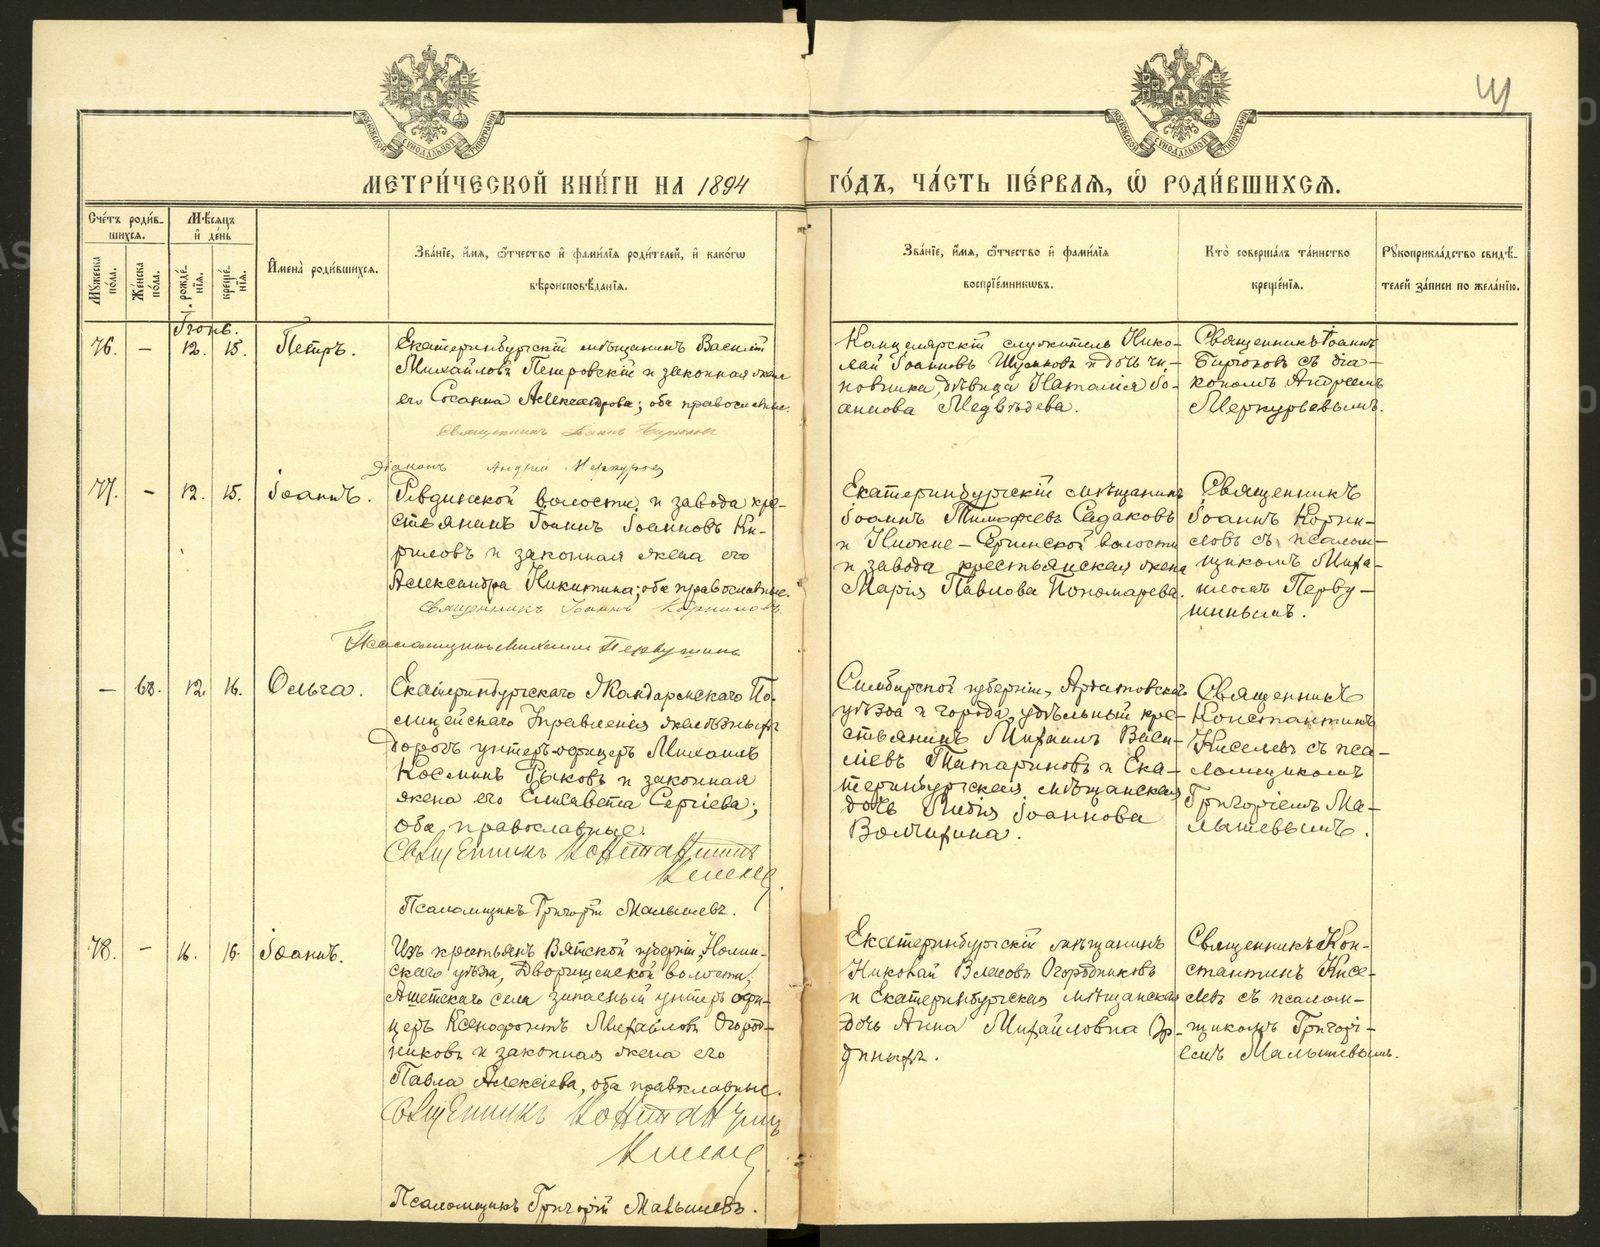 МЕТРИ́ЧЕСКОЙ КНИ́ГИ НА 1894 ГО́ДЪ, ЧА́СТЬ ПЕ́РВАЯ, Ѡ РОДИ́ВШИХСЯ.
Сче́тъ роди́в-
шихся.
Му́жеска по́ла.
Же́нска по́ла.
Мѣ́сяцъ
и де́нь
рожде́нія.
креще́нія.
И́мена роди́вшихся.
Зва́ніе, и́мя, ѻ́тчество и фами́лія роди́телей, и како́гѡ
вѣроисповѣ́данія.
Зва́ніе, и́мя, ѻ́тчество и фами́лія
воспріе́мникѡвъ.
Кто̀ соверша́лъ та́инство
креще́нія.
Рꙋкоприкла́дство свидѣ́-
телей за́писи по жела́нію.
76.
–
12.
15.
Петръ.
Екатеринбургскій мѣщанинъ Василій
Михайловъ Петровскій и законная жена
его Сосанна Александрова; оба православные.
Священникъ Іоаннъ Бирюковъ
Діаконъ Андрей Меркурьев
Канцелярскій служитель Нико-
лай Іоанновъ и дочь чи-
новника, дѣвица Наталія Іо-
аннова Медвѣдева.
Священникъ Іоаннъ
Бирюковъ съ діа-
кономъ Андреемъ
Меркурьевымъ.
77.
–
12.
15.
Іоаннъ.
Ревдинской волости и завода кре-
стьянинъ Іоаннъ Іоанновъ Ки-
риловъ и законная жена его
Александра Никитина; оба православные.
Священникъ Іоаннъ Корниловъ
Псаломщикъ Михаилъ Первушинъ
Екатеринбургскій мѣщанинъ
Іоаннъ Тимофеевъ Садаковъ
и Нижне-Сергинской волости
и завода крестьянская жена
Марія Павлова Пономарева.
Священникъ
Іоаннъ Корни-
ловъ съ псалом-
щикомъ Миха-
иломъ Перву-
шинымъ.
–
68.
12.
16.
Ольга.
Екатеринбургскаго Жандармскаго По-
лицейскаго Управленія желѣзныхъ
дорогъ унтеръ-офицеръ Михаилъ
Косминъ Рыковъ и законная
жена его Елисавета Сергіева;
оба православные.
Священникъ Константинъ
Киселевъ
Псаломщикъ Григорій Малышевъ.
Симбирской губерніи, Ардатовскаго
уѣзда и города, удѣльный кре-
стьянинъ Михаилъ Васи-
льевъ Татариновъ и Ека-
теринбургская мѣщанская
дочь Лидія Іоаннова
Священникъ
Константинъ
Киселевъ съ пса-
ломщикомъ
Григоріемъ Ма-
лышевымъ.
78.
–
16.
Іоаннъ.
Изъ крестьянъ Вятской губерніи, Нолин-
скаго уѣзда, Дворищенской волости,
села запасный унтеръ офи-
церъ Ксенофонтъ Михайловъ Огород-
никовъ и законная жена его
Павла Алексіева, оба православные.
Священникъ Константинъ
Киселевъ
Псаломщикъ Григорій Малышевъ.
Екатеринбургскій мѣщанинъ
Николай Власовъ Огородниковъ
и Екатеринбургская мѣщанская
дочь Анна Михайловна
Священникъ Кон-
стантинъ Кисе-
левъ съ псалом-
щикомъ Григорі-
емъ Малышевымъ.